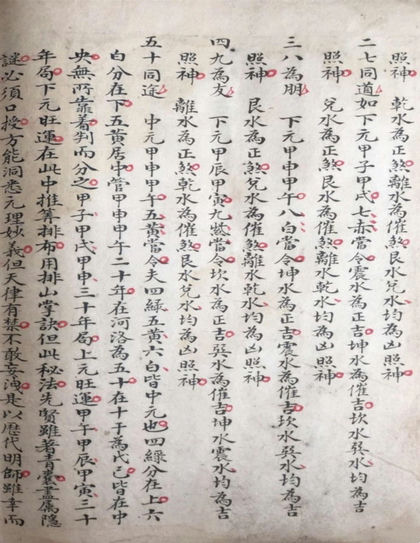 照神　乾水為正煞離水為催煞艮水兌水均為凶照神
二七同道如下元甲子甲戌七赤當令震水為正吉坤水為催吉坎水巽水均為吉
照神　兌水為正煞艮水為催煞離水乾水均為凶照神
三八為朋　下元甲申甲午八白當令坤水為正吉震水為催吉坎水巽水均為吉
照神　艮水為正煞兌水為催煞離水乾水均為凶照神
四九為友　下元甲辰甲寅九紫當令坎水為正吉巽水為催吉坤水震水均為吉
照神　離水為正煞乾水為催煞艮水兌水均為凶照神
五十同途　中元甲申甲午五黃當令夫四綠五黃六白皆中元也四綠分在上六
白分在下五黃居中管甲申甲午二十年在河洛為五十在十干為戊己皆在中
央無所靠着判而分之甲子甲戌甲申三十年局上元旺運甲午甲辰甲寅三十
年局下元旺運在此中推算排布用排山掌訣但此秘法先賢雖著青囊盡屬隱
謎必須口授方能洞悉元理妙義但天律有禁不敢妄洩是以歷代明師雖幸而